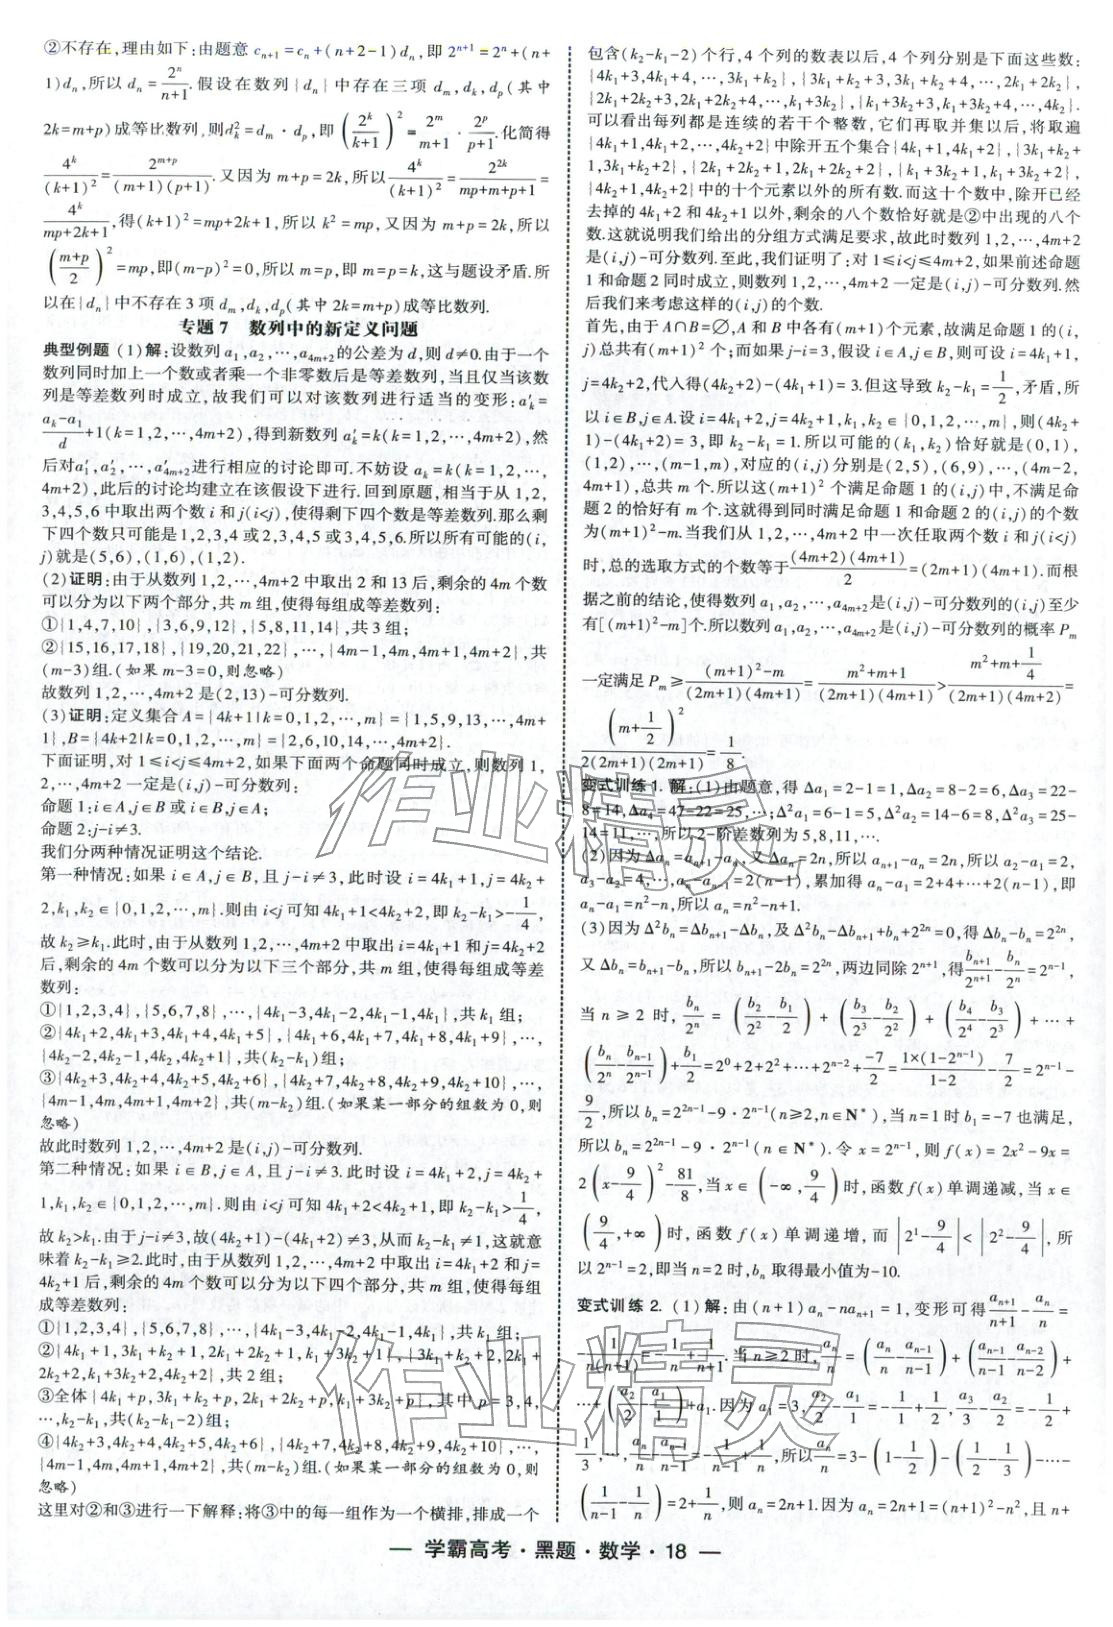 ②不存在,理由如下:由题意 cₙ₊₁=cₙ+(n+2-1)dₙ,即 2ⁿ⁺¹=2ⁿ+(n+
1)dₙ,所以 dₙ=2ⁿ/(n+1).假设在数列{dₙ}中存在三项 dₘ,dₖ,dₚ(其中
2k=m+p)成等比数列,则dₖ²=dₘ·dₚ,即(2ᵏ/(k+1))²=2ᵐ/(m+1)·2ᵖ/(p+1).化简得
4ᵏ/(k+1)²=2ᵐ⁺ᵖ/((m+1)(p+1)).又因为 m+p=2k,所以4ᵏ/(k+1)²=2²ᵏ/(mp+m+p+1)=
4ᵏ/(mp+2k+1),得(k+1)²=mp+2k+1,所以 k²=mp,又因为 m+p=2k,所以
((m+p)/2)²=mp,即(m-p)²=0,所以 m=p,即 m=p=k,这与题设矛盾.所
以在{dₙ}中不存在3项 dₘ,dₖ,dₚ(其中 2k=m+p)成等比数列.
专题7 数列中的新定义问题
典型例题 (1)解:设数列 a₁,a₂,…,a₄ₘ₊₂的公差为 d,则 d≠0.由于一个
数列同时加上一个数或者乘一个非零数后是等差数列,当且仅当该数
列是等差数列时成立,故我们可以对该数列进行适当的变形:a′ₖ=
(aₖ-a₁)/d+1(k=1,2,…,4m+2),得到新数列 a′ₖ=k(k=1,2,…,4m+2),然
后对a′₁,a′₂,…,a′₄ₘ₊₂进行相应的讨论即可.不妨设 aₖ=k(k=1,2,…,
4m+2),此后的讨论均建立在该假设下进行.回到原题,相当于从 1,2,
3,4,5,6 中取出两个数 i 和 j(i<j),使得剩下四个数是等差数列.那么剩
下四个数只可能是 1,2,3,4 或 2,3,4,5 或 3,4,5,6.所以所有可能的(i,
j)就是(5,6),(1,6),(1,2).
(2)证明:由于从数列 1,2,…,4m+2 中取出 2 和 13 后,剩余的 4m 个数
可以分为以下两个部分,共 m 组,使得每组成等差数列:
①{1,4,7,10},{3,6,9,12},{5,8,11,14},共 3 组;
②{15,16,17,18},{19,20,21,22},…,{4m-1,4m,4m+1,4m+2},共
(m-3)组.(如果 m-3=0,则忽略)
故数列 1,2,…,4m+2 是(2,13)-可分数列.
(3)证明:定义集合 A={4k+1|k=0,1,2,…,m}={1,5,9,13,…,4m+
1},B={4k+2|k=0,1,2,…,m}={2,6,10,14,…,4m+2}.
下面证明,对 1≤i<j≤4m+2,如果下面两个命题同时成立,则数列 1,
2,…,4m+2 一定是(i,j)-可分数列:
命题 1:i∈A,j∈B 或 i∈B,j∈A;
命题 2:j-i≠3.
我们分两种情况证明这个结论.
第一种情况:如果 i∈A,j∈B,且 j-i≠3,此时设 i=4k₁+1,j=4k₂+
2,k₁,k₂∈{0,1,2,…,m}.则由 i<j 可知 4k₁+1<4k₂+2,即 k₂-k₁>-1/4,
故 k₂≥k₁.此时,由于从数列 1,2,…,4m+2 中取出 i=4k₁+1 和 j=4k₂+2
后,剩余的 4m 个数可以分为以下三个部分,共 m 组,使得每组成等差
数列:
①{1,2,3,4},{5,6,7,8},…,{4k₁-3,4k₁-2,4k₁-1,4k₁},共 k₁ 组;
②{4k₁+2,4k₁+3,4k₁+4,4k₁+5},{4k₁+6,4k₁+7,4k₁+8,4k₁+9},…,
{4k₂-2,4k₂-1,4k₂,4k₂+1},共(k₂-k₁)组;
③{4k₂+3,4k₂+4,4k₂+5,4k₂+6},{4k₂+7,4k₂+8,4k₂+9,4k₂+10},…,
{4m-1,4m,4m+1,4m+2},共(m-k₂)组.(如果某一部分的组数为 0,则
忽略)
故此时数列 1,2,…,4m+2 是(i,j)-可分数列.
第二种情况:如果 i∈B,j∈A,且 j-i≠3.此时设 i=4k₁+2,j=4k₂+
1,k₁,k₂∈{0,1,2,…,m}.则由 i<j 可知 4k₁+2<4k₂+1,即 k₂-k₁>1/4,
故 k₂>k₁.由于 j-i≠3,故(4k₂+1)-(4k₁+2)≠3,从而 k₂-k₁≠1,这就意
味着 k₂-k₁≥2.此时,由于从数列 1,2,…,4m+2 中取出 i=4k₁+2 和 j=
4k₂+1 后,剩余的 4m 个数可以分为以下四个部分,共 m 组,使得每组
成等差数列:
①{1,2,3,4},{5,6,7,8},…,{4k₁-3,4k₁-2,4k₁-1,4k₁},共 k₁ 组;
②{4k₁+1,3k₁+k₂+1,2k₁+2k₂+1,k₁+3k₂+1},{3k₁+k₂+2,2k₁+
2k₂+2,k₁+3k₂+2,4k₂+2},共 2 组;
③全体{4k₁+p,3k₁+k₂+p,2k₁+2k₂+p,k₁+3k₂+p},其中 p=3,4,
…,k₂-k₁,共(k₂-k₁-2)组;
④{4k₂+3,4k₂+4,4k₂+5,4k₂+6},{4k₂+7,4k₂+8,4k₂+9,4k₂+10},…,
{4m-1,4m,4m+1,4m+2},共(m-k₂)组.(如果某一部分的组数为 0,则
忽略)
这里对②和③进行一下解释:将③中的每一组作为一个横排,排成一个
包含(k₂-k₁-2)个行,4 个列的数表以后,4 个列分别是下面这些数:
{4k₁+3,4k₁+4,…,3k₁+k₂},{3k₁+k₂+3,3k₁+k₂+4,…,2k₁+2k₂},
{2k₁+2k₂+3,2k₁+2k₂+4,…,k₁+3k₂},{k₁+3k₂+3,k₁+3k₂+4,…,4k₂}.
可以看出每列都是连续的若干个整数,它们再取并集以后,将取遍
{4k₁+1,4k₁+2,…,4k₂+2}中除开五个集合{4k₁+1,4k₁+2},{3k₁+k₂+
1,3k₁+k₂+2},{2k₁+2k₂+1,2k₁+2k₂+2},{k₁+3k₂+1,k₁+3k₂+2},
{4k₂+1,4k₂+2}中的十个元素以外的所有数.而这十个数中,除开已经
去掉的 4k₁+2 和 4k₂+1 以外,剩余的八个数恰好就是②中出现的八个
数.这就说明我们给出的分组方式满足要求,故此时数列 1,2,…,4m+2
是(i,j)-可分数列.至此,我们证明了:对 1≤i<j≤4m+2,如果前述命题
1 和命题 2 同时成立,则数列 1,2,…,4m+2 一定是(i,j)-可分数列.然
后我们来考虑这样的(i,j)的个数.
首先,由于 A∩B=∅,A 和 B 中各有(m+1)个元素,故满足命题 1 的(i,
j)总共有(m+1)² 个;而如果 j-i=3,假设 i∈A,j∈B,则可设 i=4k₁+1,
j=4k₂+2,代入得(4k₂+2)-(4k₁+1)=3.但这导致 k₂-k₁=1/2,矛盾,所
以 i∈B,j∈A.设 i=4k₁+2,j=4k₂+1,k₁,k₂∈{0,1,2,…,m},则(4k₂+
1)-(4k₁+2)=3,即 k₂-k₁=1.所以可能的(k₁,k₂)恰好就是(0,1),
(1,2),…,(m-1,m),对应的(i,j)分别是(2,5),(6,9),…,(4m-2,
4m+1),总共 m 个.所以这(m+1)² 个满足命题 1 的(i,j)中,不满足命
题 2 的恰好有 m 个.这就得到同时满足命题 1 和命题 2 的(i,j)的个数
为(m+1)²-m.当我们从 1,2,…,4m+2 中一次任取两个数 i 和 j(i<j)
时,总的选取方式的个数等于(4m+2)(4m+1)/2=(2m+1)(4m+1).而根
据之前的结论,使得数列 a₁,a₂,…,a₄ₘ₊₂是(i,j)-可分数列的(i,j)至少
有[(m+1)²-m]个.所以数列 a₁,a₂,…,a₄ₘ₊₂是(i,j)-可分数列的概率 Pₘ
一定满足 Pₘ≥((m+1)²-m)/((2m+1)(4m+1))=(m²+m+1)/((2m+1)(4m+1))>(m²+m+1/4)/((2m+1)(4m+2))=
(m+1/2)²/(2(2m+1)(2m+1))=1/8.
变式训练 1. 解:(1)由题意,得 Δa₁=2-1=1,Δa₂=8-2=6,Δa₃=22-
8=14,Δa₄=47-22=25,…;Δ²a₁=6-1=5,Δ²a₂=14-6=8,Δ²a₃=25-
14=11,…,所以 2-阶差数列为 5,8,11,….
(2)因为 Δaₙ=aₙ₊₁-aₙ,又 Δaₙ=2n,所以 aₙ₊₁-aₙ=2n,所以 a₂-a₁=2,
a₃-a₂=4,…,aₙ-aₙ₋₁=2(n-1),累加得 aₙ-a₁=2+4+…+2(n-1),即
aₙ-a₁=n²-n,所以 aₙ=n²-n+1.
(3)因为 Δ²bₙ=Δbₙ₊₁-Δbₙ,及 Δ²bₙ-Δbₙ₊₁+bₙ+2²ⁿ=0,得 Δbₙ-bₙ=2²ⁿ,
又 Δbₙ=bₙ₊₁-bₙ,所以 bₙ₊₁-2bₙ=2²ⁿ,两边同除 2ⁿ⁺¹,得bₙ₊₁/2ⁿ⁺¹-bₙ/2ⁿ=2ⁿ⁻¹,
当 n≥2 时,bₙ/2ⁿ=(b₂/2²-b₁/2)+(b₃/2³-b₂/2²)+(b₄/2⁴-b₃/2³)+…+
(bₙ/2ⁿ-bₙ₋₁/2ⁿ⁻¹)+b₁/2=2⁰+2+2²+…+2ⁿ⁻²+(-7)/2=(1×(1-2ⁿ⁻¹))/(1-2)-7/2=2ⁿ⁻¹-
9/2,所以 bₙ=2²ⁿ⁻¹-9·2ⁿ⁻¹(n≥2,n∈N*),当 n=1 时 b₁=-7 也满足,
所以 bₙ=2²ⁿ⁻¹-9·2ⁿ⁻¹(n∈N*).令 x=2ⁿ⁻¹,则 f(x)=2x²-9x=
2(x-9/4)²-81/8,当 x∈(-∞,9/4)时,函数 f(x)单调递减,当 x∈
(9/4,+∞)时,函数 f(x)单调递增,而|2¹-9/4|<|2²-9/4|,所
以 2ⁿ⁻¹=2,即当 n=2 时,bₙ 取得最小值为-10.
变式训练 2. (1)解:由(n+1)aₙ-naₙ₊₁=1,变形可得aₙ₊₁/(n+1)-aₙ/n=
-1/(n(n+1))=-1/n+1/(n+1).当 n≥2 时,aₙ/n=(aₙ/n-aₙ₋₁/(n-1))+(aₙ₋₁/(n-1)-aₙ₋₂/(n-2))+
…+(a₂/2-a₁/1)+a₁.因为 a₁=3,a₂/2-a₁/1=-1/1+1/2,a₃/3-a₂/2=-1/2+
1/3,…,aₙ/n-aₙ₋₁/(n-1)=-1/(n-1)+1/n,所以aₙ/n=3-(1-1/2)-(1/2-1/3)-…-
(1/(n-1)-1/n)=2+1/n,则 aₙ=2n+1.因为 aₙ=2n+1=(n+1)²-n²,且 n+
作业精灵
作业精灵
— 学霸高考·黑题·数学·18 —